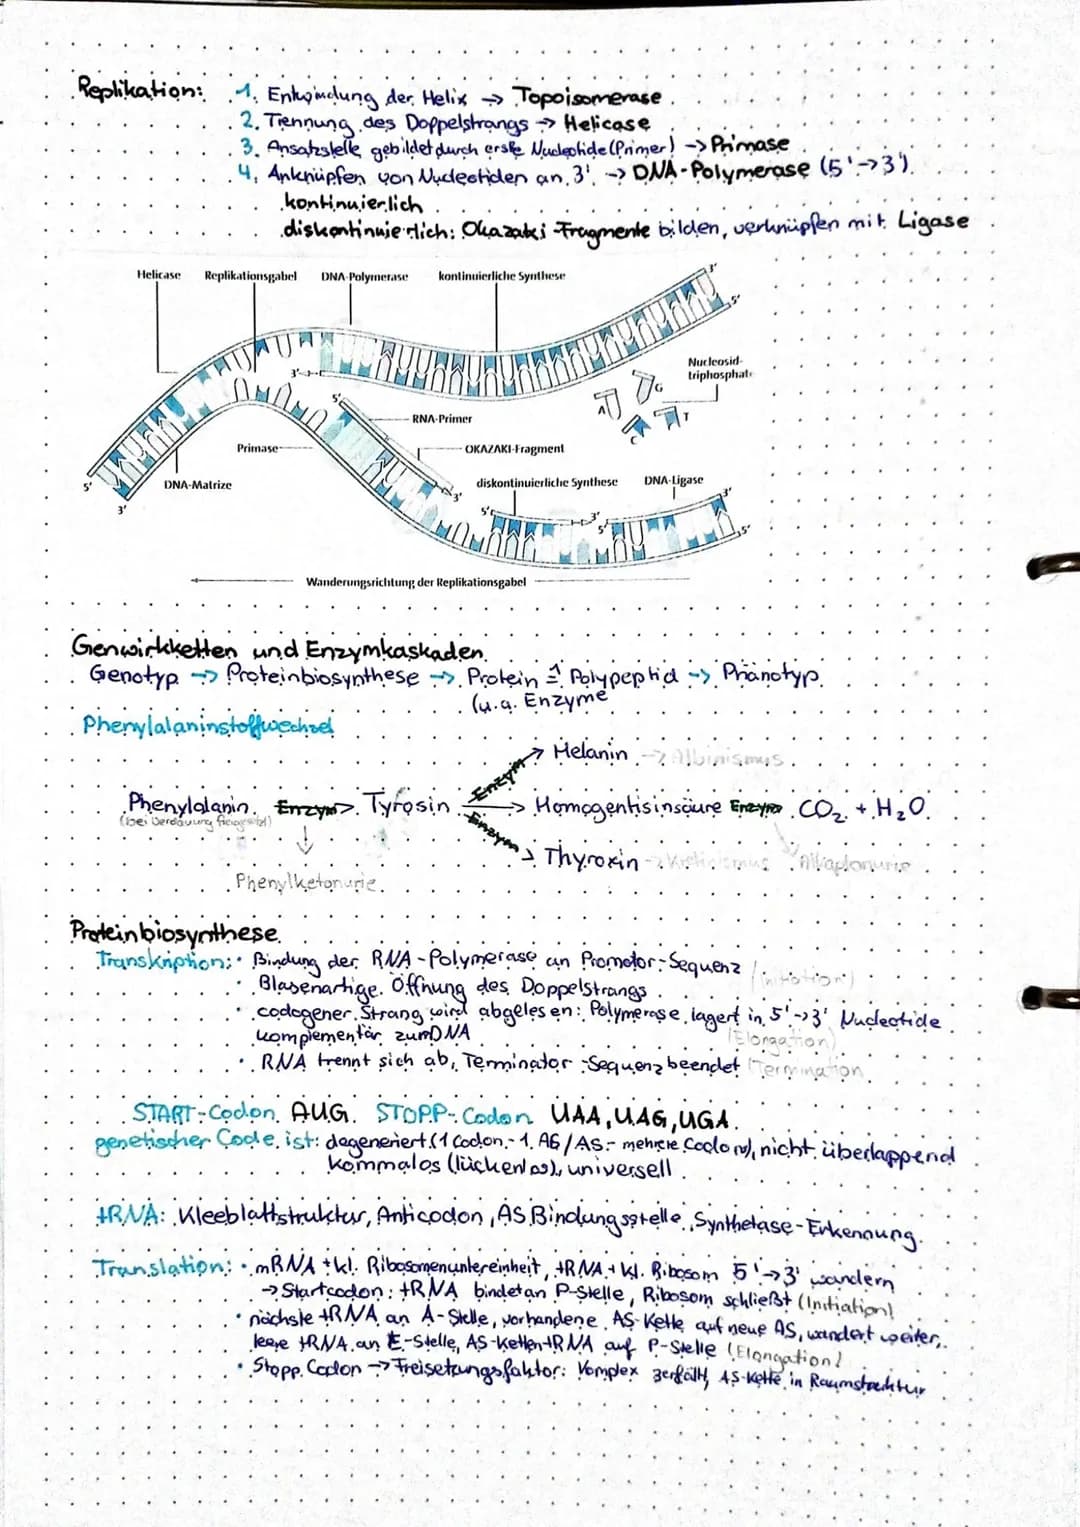 Replikation: 1. Entwindung der Helix → Topoisomerase
2. Trennung des Doppelstrangs → Helicase
3. Ansatzstelle gebildet durch erste Nucleotide (Primer) → Primase
4. Anknüpfen von Nucleotiden an 3' → DNA-Polymerase (5'→3')
kontinuierlich
diskontinuierlich: Okazaki Fragmente bilden, verknüpfen mit Ligase
Helicase Replikationsgabel DNA-Polymerase kontinuierliche Synthese
3'
5'
Nucleosid-
triphosphat
3'
5'
A G C T
RNA-Primer
Primase
OKAZAKI-Fragment
5'
DNA-Matrize
diskontinuierliche Synthese DNA-Ligase
3'
3'
5' 3' 5'
3'
5'
Wanderungsrichtung der Replikationsgabel
Genwirkketten und Enzymkaskaden
Genotyp → Proteinbiosynthese → Protein ≙ Polypeptid → Phänotyp
(u.a. Enzyme
Phenylalaninstoffwechsel
Enzym → Melanin → Albinismus
Phenylalanin Enzym> Tyrosin → Homogentisinsäure Enzym CO₂ + H₂O
(bei Verdauung freigesetzt)
Enzym → Thyroxin → Kretinismus Alkaptonurie
Phenylketonurie
Proteinbiosynthese
Transkription: • Bindung der RNA-Polymerase an Promotor-Sequenz (Initiation)
• Blasenartige Öffnung des Doppelstrangs
• codogener Strang wird abgelesen: Polymerase lagert in 5'→3' Nucleotide
komplementär zum DNA (Elongation)
• RNA trennt sich ab, Terminator-Sequenz beendet (Termination
START-Codon AUG STOPP-Codon UAA, UAG, UGA
genetischer Code ist: degeneriert (1 Codon - 1 AS / AS - mehrere Codons), nicht überlappend
kommalos (lückenlos), universell
tRNA: Kleeblattstruktur, Anticodon, AS Bindungsstelle, Synthetase-Erkennung
Translation: • mRNA + kl. Ribosomenuntereinheit, tRNA + kl. Ribosom 5'→3' wandern
→ Startcodon: tRNA bindet an P-Stelle, Ribosom schließt (Initiation)
• nächste tRNA an A-Stelle, vorhandene AS-Kette auf neue AS, wandert weiter,
leere tRNA an E-Stelle, AS-Ketten-tRNA auf P-Stelle (Elongation)
• Stopp Codon → Freisetzungsfaktor: Komplex zerfällt, AS-Kette in Raumstruktur